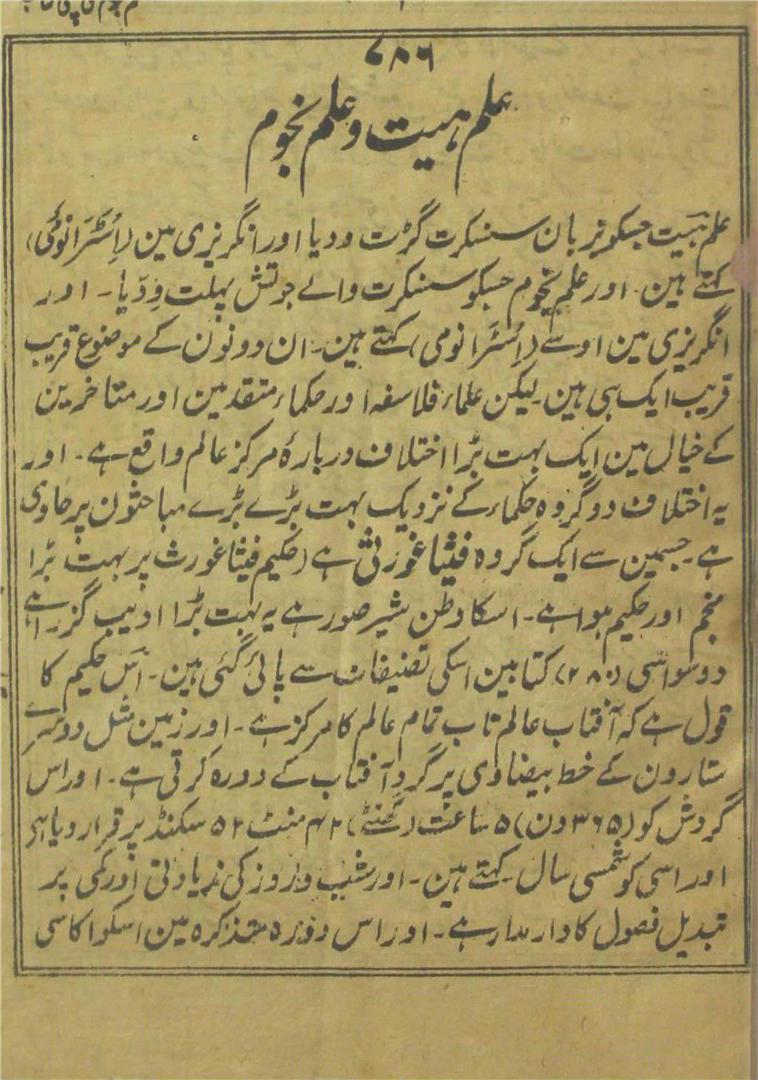 ۷۸۶
علم ہیت و علم نجوم
علم ہیت جسکو زبان سنسکرت گڑت ودیا اور انگریزی مین (اِسٹرانومی)
کہتے ہین۔ اور علم نجوم جسکو سنسکرت والے جوتش پہلت وِدّیا۔ اور
انگریزی مین اوسے (اِسٹرانومی) کہتے ہین۔ ان دونون کے موضوع قریب
قریب ایک ہی ہین لیکن علماء فلاسفہ اور حکماء متقدمین اور متاخرین
کے خیال مین ایک بہت بڑا اختلاف دربارۂ مرکز عالم واقع ہے۔ اور
یہ اختلاف دو گروہ حکماء کے نزدیک بہت بڑے بڑے مباحثون پر حاوی
ہے۔ جسمین سے ایک گروہ فیثاغورثی ہے (حکیم فیثاغورث پر بہت بڑا
منجم اور حکیم ہوا ہے۔ اسکا وطن شہر صور ہے یہ بہت بڑا ادیب گزرا ہے
دوسو اسی (۲۸۰) کتابین اسکی تصنیفات سے پائی گئی ہین۔ اس حکیم کا
قول ہے کہ آفتاب عالم تاب تمام عالم کا مرکز ہے۔ اور زمین مثل دوسرے
ستارون کے خط بیضاوی پر گرد آفتاب کے دورہ کرتی ہے۔ اور اس
گردش کو (۳۶۵ دن) ۵ ساعت (گھنٹے) ۴۸ منٹ ۵۲ سکنڈ پر قرار دیا ہی
اور اسی کو شمسی سال کہتے ہین۔ اور شب و روز کی زیادتی اور کمی پر
تبدیل فصول کا دار مدار ہے۔ اور اس دورہ متذکرہ مین اسکو اکاسی